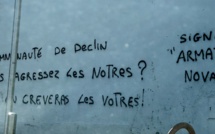 MMUNAUTÉ DE DECLIN
S AGRESSEZ LES NOTRES ?
N CREVERAS LES VOTRES !
SIGN
"ARMAT
NOVA